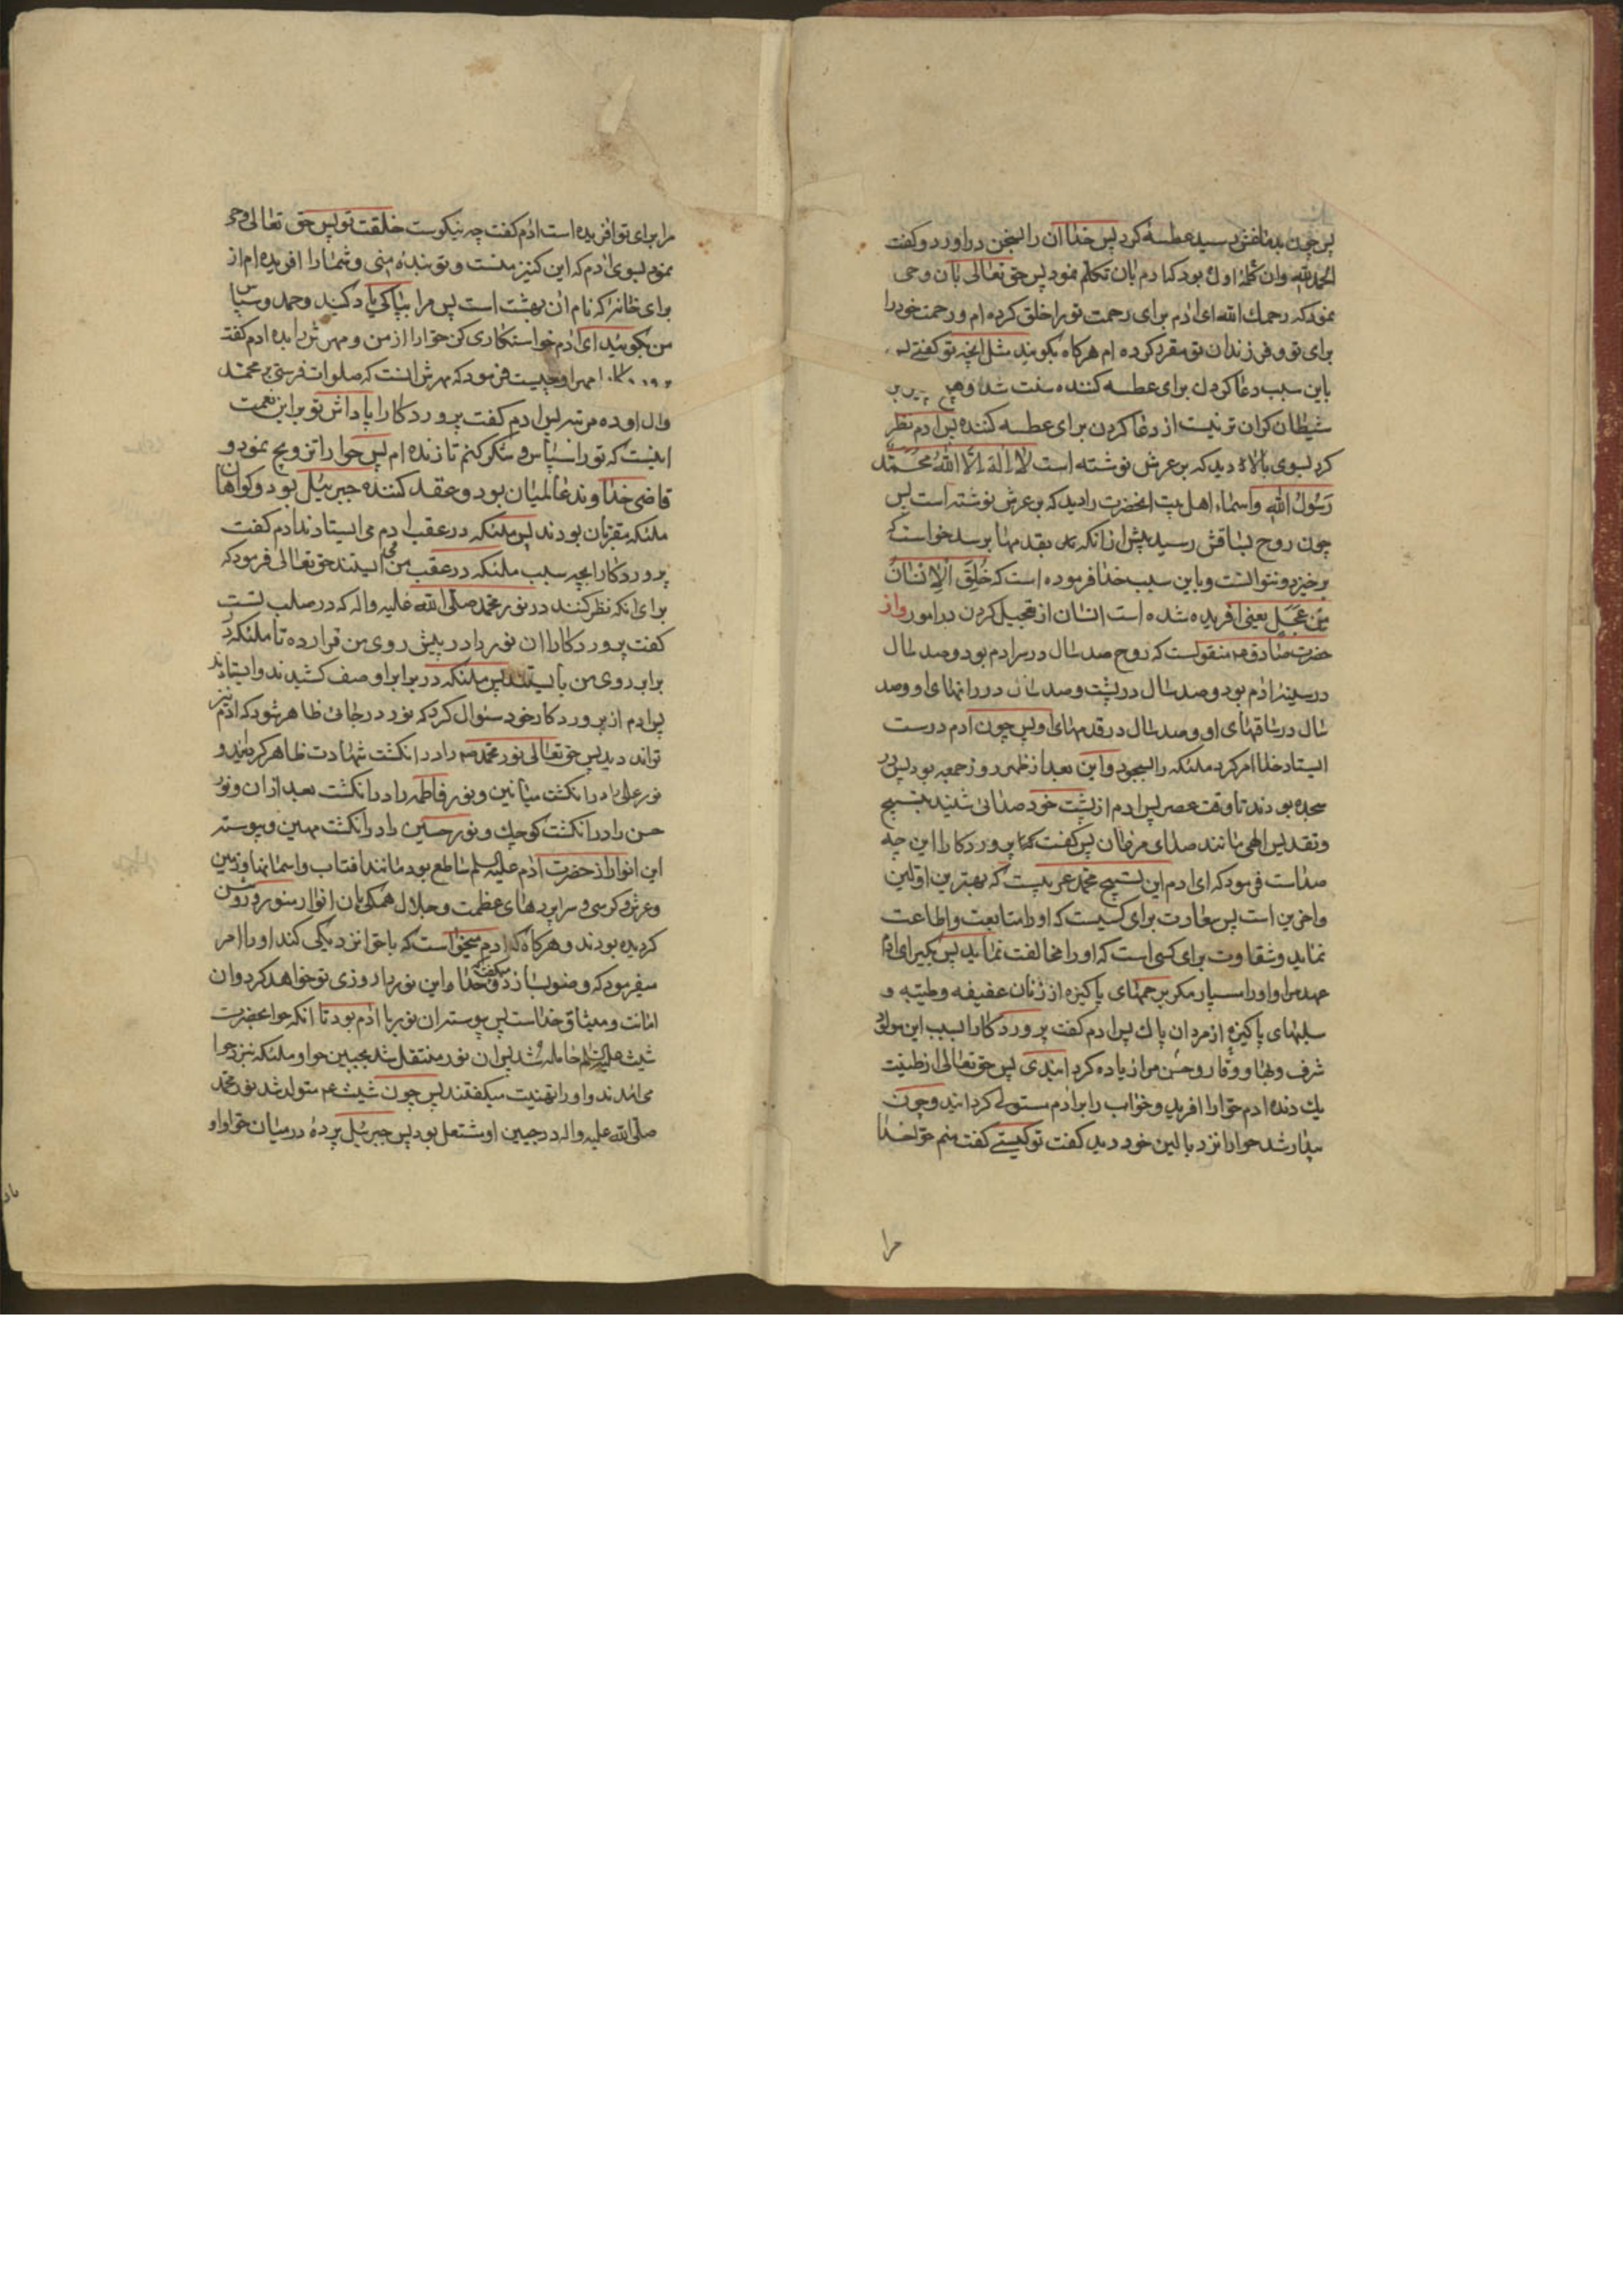 پس چون بدماغش رسید عطسهٔ کرد پس خدا ان را بسخن دراورد و کفت
الحمدلله وان کلمهٔ اول بود که ادم بان تکلم نمود پس حق تعالی بان وحی
نمود که رحمك الله ای ادم برای رحمت تو را خلق کرده ام و رحمت خود را
برای تو و فرزندان تو مقرر کرده ام هرکاه بکویند مثل انچه تو کفتی پس
باین سبب دعا کردن برای عطسه کننده سنت شد و هیچ چیز بر
شیطان کران تر نیست از دعا کردن برای عطسه کننده پس ادم نظر
کرد بسوی بالا دید که بر عرش نوشته است لا اله الا الله محمد
رسول الله واسماء اهل بیت انحضرت را دید که بر عرش نوشته است پس
چون روح بساقش رسید پیش از انکه بقدمها برسد خواست که
برخیزد و نتوانست و باین سبب خدا فرموده است که خلق الانسان
من عجل یعنی افریده شده است انسان از تعجیل کردن در امور و از
حضرت صادق ع منقولست که روح صد سال در سر ادم بود و صد سال
در سینهٔ ادم بود و صد سال در پشت و صد سال در رانهای او و صد
سال در ساقهای او و صد سال در قدمهای او پس چون ادم درست
ایستاد خدا امر کرد ملئکه را بسجود و این بعد از ظهر روز جمعه بود پس در
سجده بودند تا وقت عصر پس ادم از پشت خود صدائی شنید تسبیح
و تقدیس الهی مانند صدای مرغان پس کفت که پروردکارا این چه
صداست فرمود که ای ادم این تسبیح محمد عربیست که بهترین اولین
و اخرین است پس سعادت برای کسیست که او را متابعت و اطاعت
نماید و شقاوت برای کسی است که او را مخالفت نماید پس بکیر ای ادم
عهد مرا و او را مسپار مکر برحمهای پاکیزه از زنان عفیفه و طیبه و
صلبهای پاکیزه از مردان پاك پس ادم کفت پروردکارا بسبب این مولود
شرف و بها و وقار و حسن مرا زیاده کردانیدی پس حق تعالی از طینت
یك دنده ادم حوا را افرید و خواب را بر ادم مستولی کردانید و چون
بیدار شد حوا را نزد بالین خود دید کفت تو کیستی کفت منم حوا خدا
مرا
مرا برای تو افریده است ادم کفت چه نیکوست خلقت تو پس حق تعالی وحی
نمود بسوی ادم که این کنیز منست و تو بندهٔ منی و شما را افریده ام از
برای خانهٔ که نام ان بهشت است پس مرا بپاکی یاد کنید و حمد و سپاس
من بکویید ای ادم خواستکاری کن حوا را از من و مهرش را بده ادم کفت
مهر او چیست فرمود که مهرش انست که صلوات فرستی بر محمد
وال او ده مرتبه پس ادم کفت پروردکارا پاداش تو بر این نعمت
اینست که تو را سپاس و شکر کنم تا زنده ام پس حوا را تزویج نمود و
قاضی خداوند عالمیان بود و عقد کننده جبرئیل بود و کواهان
ملئکه مقربان بودند پس ملئکه در عقب ادم می ایستادند ادم کفت
پروردکارا بچه سبب ملئکه در عقب من می ایستند حق تعالی فرمود که
برای انکه نظر کنند در نور محمد صلی الله علیه واله که در صلب تست
کفت پروردکارا ان نور را در پیش روی من قرار ده تا ملئکه در
برابر روی من بایستند پس ملئکه در برابر او صف کشیدند و ایستادند
پس ادم از پروردکار خود سئوال کرد که نور در جائی ظاهر شود که ادم نیز
تواند دید پس حق تعالی نور محمد ص را در انکشت شهادت ظاهر کردانید و
نور علی را در انکشت میانین و نور فاطمه را در انکشت بعد از ان و نور
حسن را در انکشت کوچك و نور حسین را در انکشت مهین و پیوسته
این انوار از حضرت ادم علیه السلم ساطع بود مانند افتاب و اسمانها و زمین
و عرش و کرسی و سراپردهای عظمت و جلال همکی بان انوار منور و روشن
کردیده بودند و هرکاه که ادم میخواست که با حوا نزدیکی کند او را امر
میفرمود که وضو بسازد و میکفت خدا این نور را روزی تو خواهد کرد و ان
امانت و میثاق خداست پس پیوسته ان نور با ادم بود تا انکه حوا بحضرت
شیث علیه السلم حامله شد پس ان نور منتقل شد بجبین حوا و ملئکه نزد حوا
می امدند و او را تهنیت میکفتند پس چون شیث ع متولد شد نور محمد
صلی الله علیه واله در جبین او مشتعل بود پس جبرئیل پردهٔ در میان حوا و او